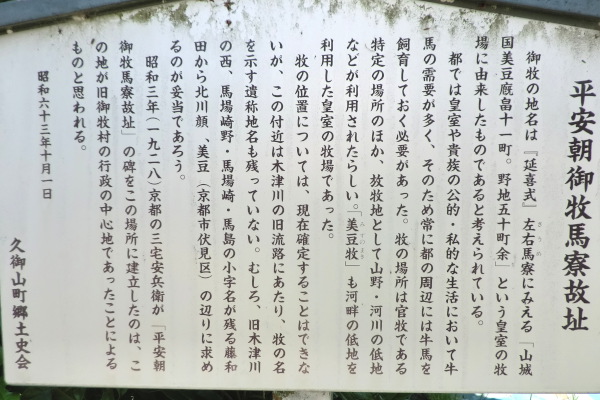 平安朝御牧馬寮故址
御牧の地名は『延喜式』左右馬寮にみえる「山城
国美豆廐畠十一町。野地五十町余」という皇室の牧
場に由来したものであると考えられている。
都では皇室や貴族の公的・私的な生活において牛
馬の需要が多く、そのため常に都の周辺には牛馬を
飼育しておく必要があった。牧の場所は官牧である
特定の場所のほか、放牧地として山野・河川の低地
などが利用されたらしい。「美豆牧」も河畔の低地を
利用した皇室の牧場であった。
牧の位置については、現在確定することはできな
いが、この付近は木津川の旧流路にあたり、牧の名
を示す遺称地名も残っていない。むしろ、旧木津川
の西、馬場崎野・馬場崎・馬島の小字名が残る藤和
田から北川顔、美豆（京都市伏見区）の辺りに求め
るのが妥当であろう。
昭和三年（一九二八）京都の三宅安兵衛が「平安朝
御牧馬寮故址」の碑をこの場所に建立したのは、こ
の地が旧御牧村の行政の中心地であったことによる
ものと思われる。
昭和六十三年十月一日
久御山町郷土史会